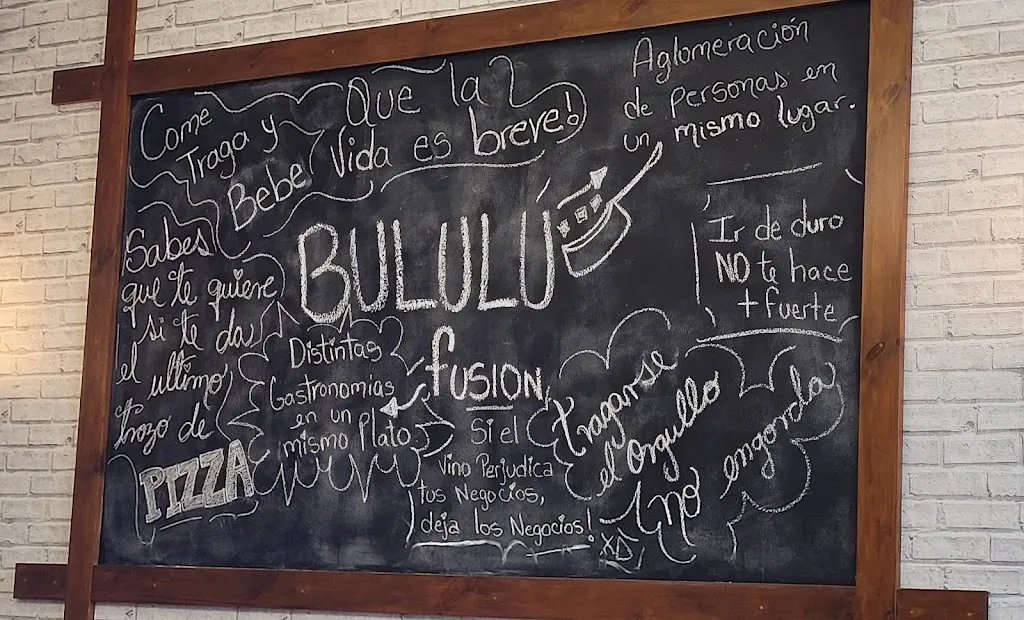 Come
Traga y
Bebe
Que la
Vida es breve!
Aglomeración
de personas en
un mismo lugar.
BULULÚ
fusión
Sabes
que te quiere
si te da
el ultimo
trozo de
PIZZA
Distintas
Gastronomias
en un
mismo Plato
Si el
vino Perjudica
tus Negocios,
deja los Negocios!
Ir de duro
NO te hace
+ fuerte
tragarse
el orgullo
no engorda
XD